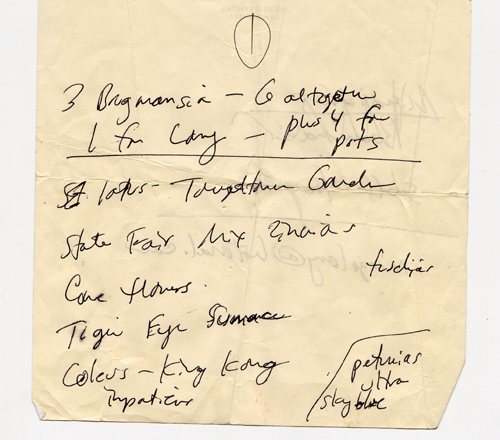 3 Brugmansia - 6 altogether
1 for Larry - plus 4 for
pots
lotus - Garden
State Fair Mix Zinnias
fuschias
Cone flowers.
Tiger Eye Sumac
Coleus - King Kong
Impatiens
petunias
ultra
sky blue